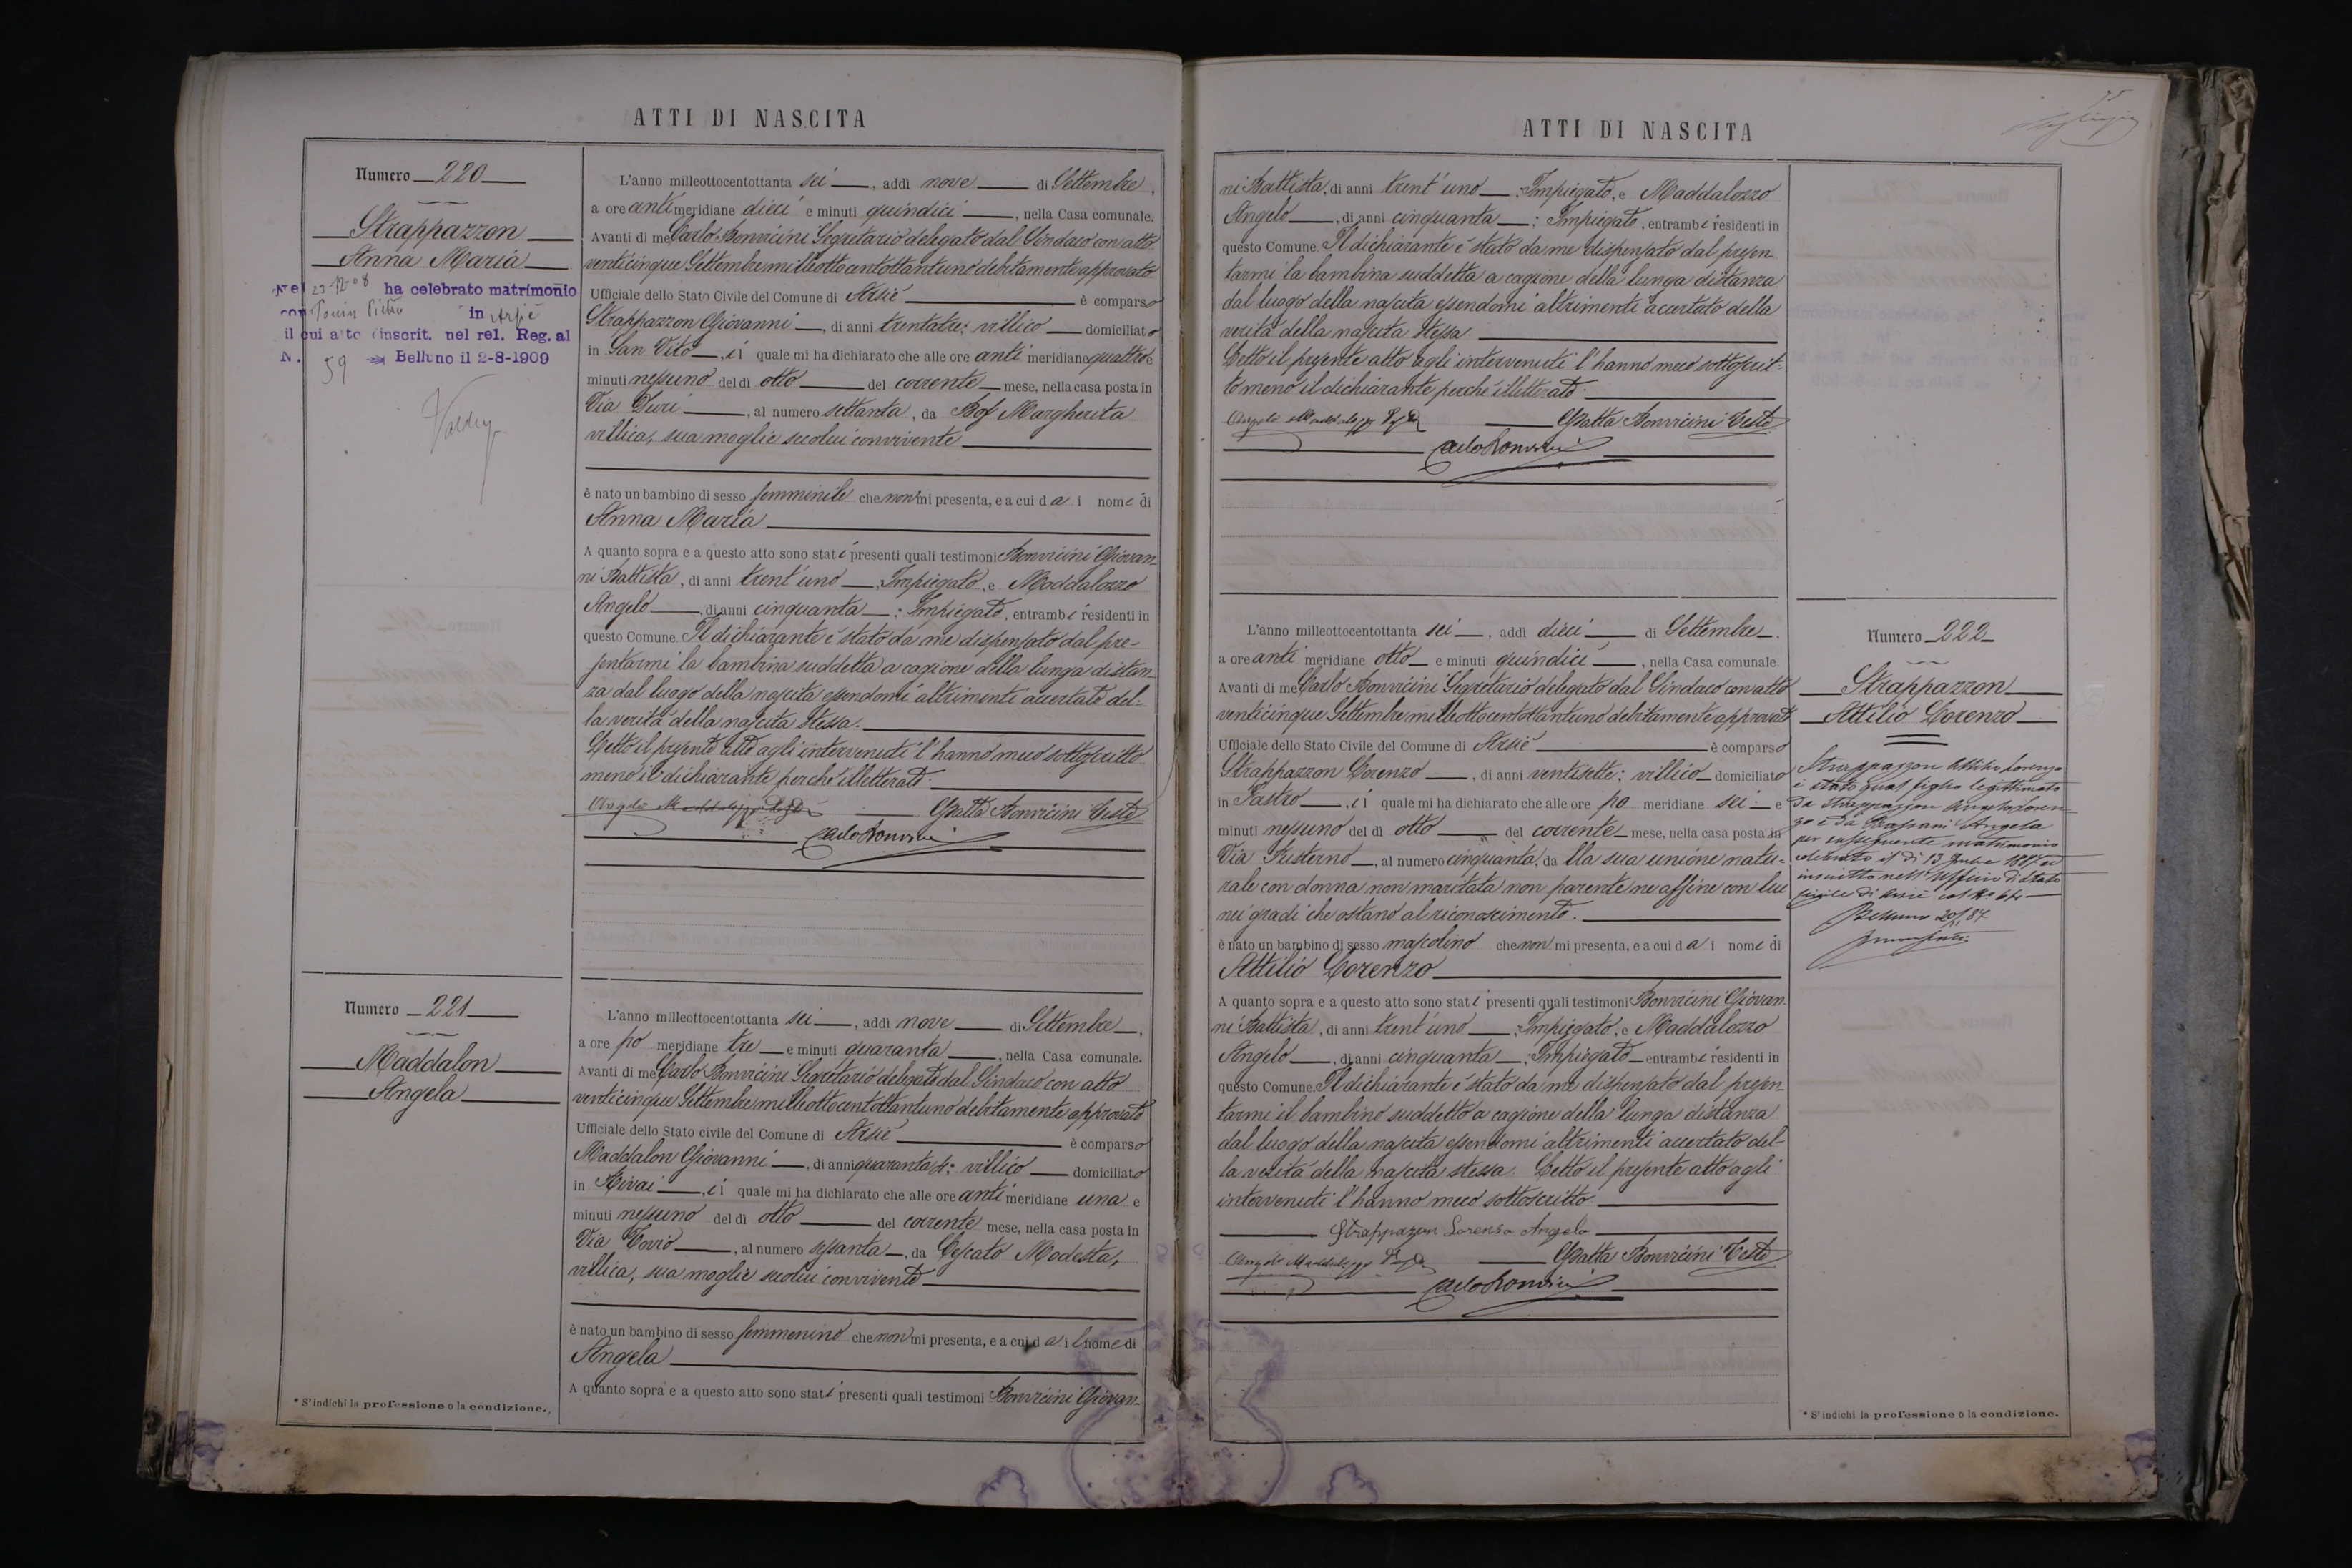 ATTI DI NASCITA
Numero 220
Strappazzon
Anna Maria
Nel 23-12-08 ha celebrato matrimonio
con Pietro in Arsiè
il cui atto è inscrit. nel rel. Reg. al
N. 59 Belluno il 2-8-1909
L'anno milleottocentottanta sei, addì nove di Settembre,
a ore anti meridiane dieci e minuti quindici, nella Casa comunale.
Avanti di me Carlo Bonvicini Segretario delegato dal Sindaco con atto
venticinque Settembre milleottocentottantuno debitamente approvato
Ufficiale dello Stato Civile del Comune di Arsiè è comparso
Strappazzon Giovanni, di anni trentatre; villico domiciliato
in San Vito, il quale mi ha dichiarato che alle ore anti meridiane quattro e
minuti nessuno del dì otto del corrente mese, nella casa posta in
Via Duri, al numero settanta, da Bof Margherita
villica, sua moglie secolui convivente
è nato un bambino di sesso femminile che non mi presenta, e a cui dà i nomi di
Anna Maria
A quanto sopra e a questo atto sono stati presenti quali testimoni Bonvicini Giovan-
ni Battista, di anni trent'uno, Impiegato, e Maddalozzo
Angelo, di anni cinquanta; Impiegato, entrambi residenti in
questo Comune. Il dichiarante è stato da me dispensato dal pre-
sentarmi la bambina suddetta a cagione della lunga distan-
za dal luogo della nascita essendomi altrimenti accertato del-
la verità della nascita stessa.
Letto il presente atto agli intervenuti l'hanno meco sottoscritto
meno il dichiarante perchè illetterato.
Angelo Maddalozzo GBatta Bonvicini Teste
Carlo Bonvicini
Numero 221
Maddalon
Angela
L'anno milleottocentottanta sei, addì nove di Settembre,
a ore po meridiane tre e minuti quaranta, nella Casa comunale.
Avanti di me Carlo Bonvicini Segretario delegato dal Sindaco con atto
venticinque Settembre milleottocentottantuno debitamente approvato
Ufficiale dello Stato civile del Comune di Arsiè è comparso
Maddalon Giovanni, di anni villico domiciliato
in Rivai, il quale mi ha dichiarato che alle ore anti meridiane una e
minuti nessuno del dì otto del corrente mese, nella casa posta in
Via, al numero sessanta, da Cescato Modesta,
villica, sua moglie secolui convivente
è nato un bambino di sesso femmenino che non mi presenta, e a cui dà il nome di
Angela
A quanto sopra e a questo atto sono stati presenti quali testimoni Bonvicini Giovan-
* S'indichi la professione o la condizione.
ATTI DI NASCITA
ni Battista, di anni trent'uno; Impiegato, e Maddalozzo
Angelo, di anni cinquanta; Impiegato, entrambi residenti in
questo Comune. Il dichiarante è stato da me dispensato dal presen
tarmi la bambina suddetta a cagione della lunga distanza
dal luogo della nascita essendomi altrimenti accertato della
verità della nascita stessa.
Letto il presente atto agli intervenuti l'hanno meco sottoscrit-
to meno il dichiarante perchè illetterato.
Angelo Maddalozzo GBatta Bonvicini Teste
Carlo Bonvicini
L'anno milleottocentottanta sei, addì dieci di Settembre.
a ore anti meridiane otto e minuti quindici, nella Casa comunale
Avanti di me Carlo Bonvicini Segretario delegato dal Sindaco con atto
venticinque Settembre milleottocentottantuno debitamente approvato
Ufficiale dello Stato Civile del Comune di Arsiè è comparso
Strappazzon Lorenzo, di anni ventisette; villico domiciliato
in Fastro, il quale mi ha dichiarato che alle ore po meridiane sei e
minuti nessuno del dì otto del corrente mese, nella casa posta in
Via, al numero cinquanta, da lla sua unione natu-
rale con donna non maritata non parente ne affine con lui
nei gradi che ostano al riconoscimento.
è nato un bambino di sesso mascolino che non mi presenta, e a cui dà i nomi di
Attilio Lorenzo
A quanto sopra e a questo atto sono stati presenti quali testimoni Bonvicini Giovan-
ni Battista, di anni trent'uno; Impiegato, e Maddalozzo
Angelo, di anni cinquanta; Impiegato entrambi residenti in
questo Comune. Il dichiarante è stato da me dispensato dal presen
tarmi il bambino suddetto a cagione della lunga distanza
dal luogo della nascita essendomi altrimenti accertato del-
la verità della nascita stessa. Letto il presente atto agli
intervenuti l'hanno meco sottoscritto
Strappazzon Lorenzo Angelo
Angelo Maddalozzo GBatta Bonvicini Teste
Carlo Bonvicini
Numero 222
Strappazzon
Attilio Lorenzo
Strappazzon Attilio Lorenzo
è stato qual figlio legittimato
da Strappazzon Angelo Loren-
zo e da Angela
per susseguente matrimonio
celebrato il dì 13 1887 ed
inscritto nell'Ufficio di Stato
Civile di Arsiè al No
Belluno 87
* S'indichi la professione o la condizione.